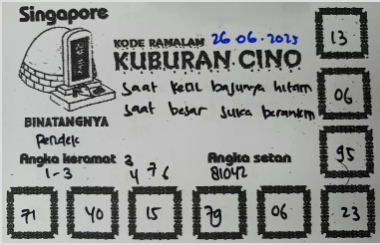 Singapore
KODE RAMALAN 26 06 - 2025
KUBURAN CINO
saat kecil bajunya hitam
saat besar suka berantem
BINATANGNYA
Pendek
Angka keramat
1-3
3
4 7 6
Angka setan
81042
13
06
95
71 40 15 79 06 23